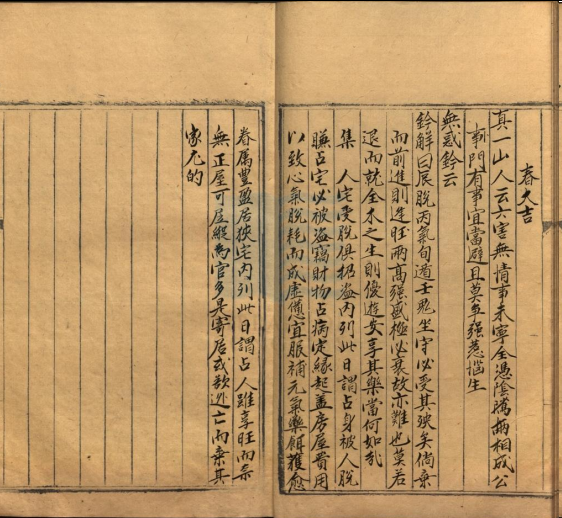 春大吉
真一山人云六害無情事未寧全憑陰騭兩相成公
訟門有事宜當避且莫爭強惹惱生
無惑鈐云
鈐解曰辰脫丙氣旬遁壬鬼坐守必受其殃矣倘棄
而前進則逢旺兩高强盛極必衰故亦難也莫若
退而就全木之生則優遊安享其樂當何如哉
集 人宅受脫俱招盜内列此日謂占身被人脫
賺占宅必被盜竊財物占病定緣起蓋房屋費用
以致心氣脫耗而成虛憊宜服補元氣藥餌獲愈
眷屬豐盈居狹宅内列此日謂占人雖享旺而奈
無正屋可居縱為官多是寄居或欲逃亡而棄其
家尤的